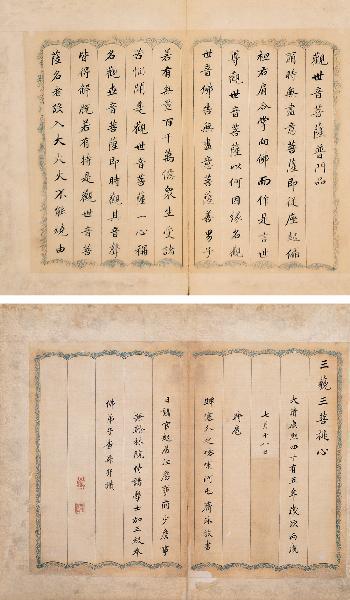 觀世音菩薩普門品
爾時無盡意菩薩即從座起偏
袒右肩合掌向佛而作是言世
尊觀世音菩薩以何因緣名觀
世音佛告無盡意菩薩善男子
若有無量百千萬億衆生受諸
苦惱聞是觀世音菩薩一心稱
名觀世音菩薩即時觀其音聲
皆得解脫若有持是觀世音菩
薩名者設入大火火不能燒由
三藐三菩提心
大清康熙四十有五年歲次丙戌
七月十日
時扈
蹕塞外之喀喇河屯齋沐敬書
日講官起居注詹事府少詹事
兼翰林院侍講學士加三級
佛弟子查昇拜識